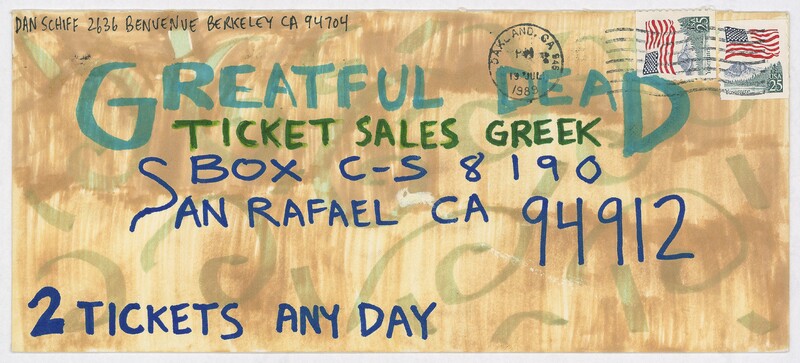 DAN SCHIFF 2636 BENVENUE BERKELEY CA 94704
OAKLAND, CA 946
PM
13 JUL
1989
USA 25
GREATFUL DEAD
TICKET SALES GREEK
BOX C-S 8190
SAN RAFAEL CA 94912
2 TICKETS ANY DAY